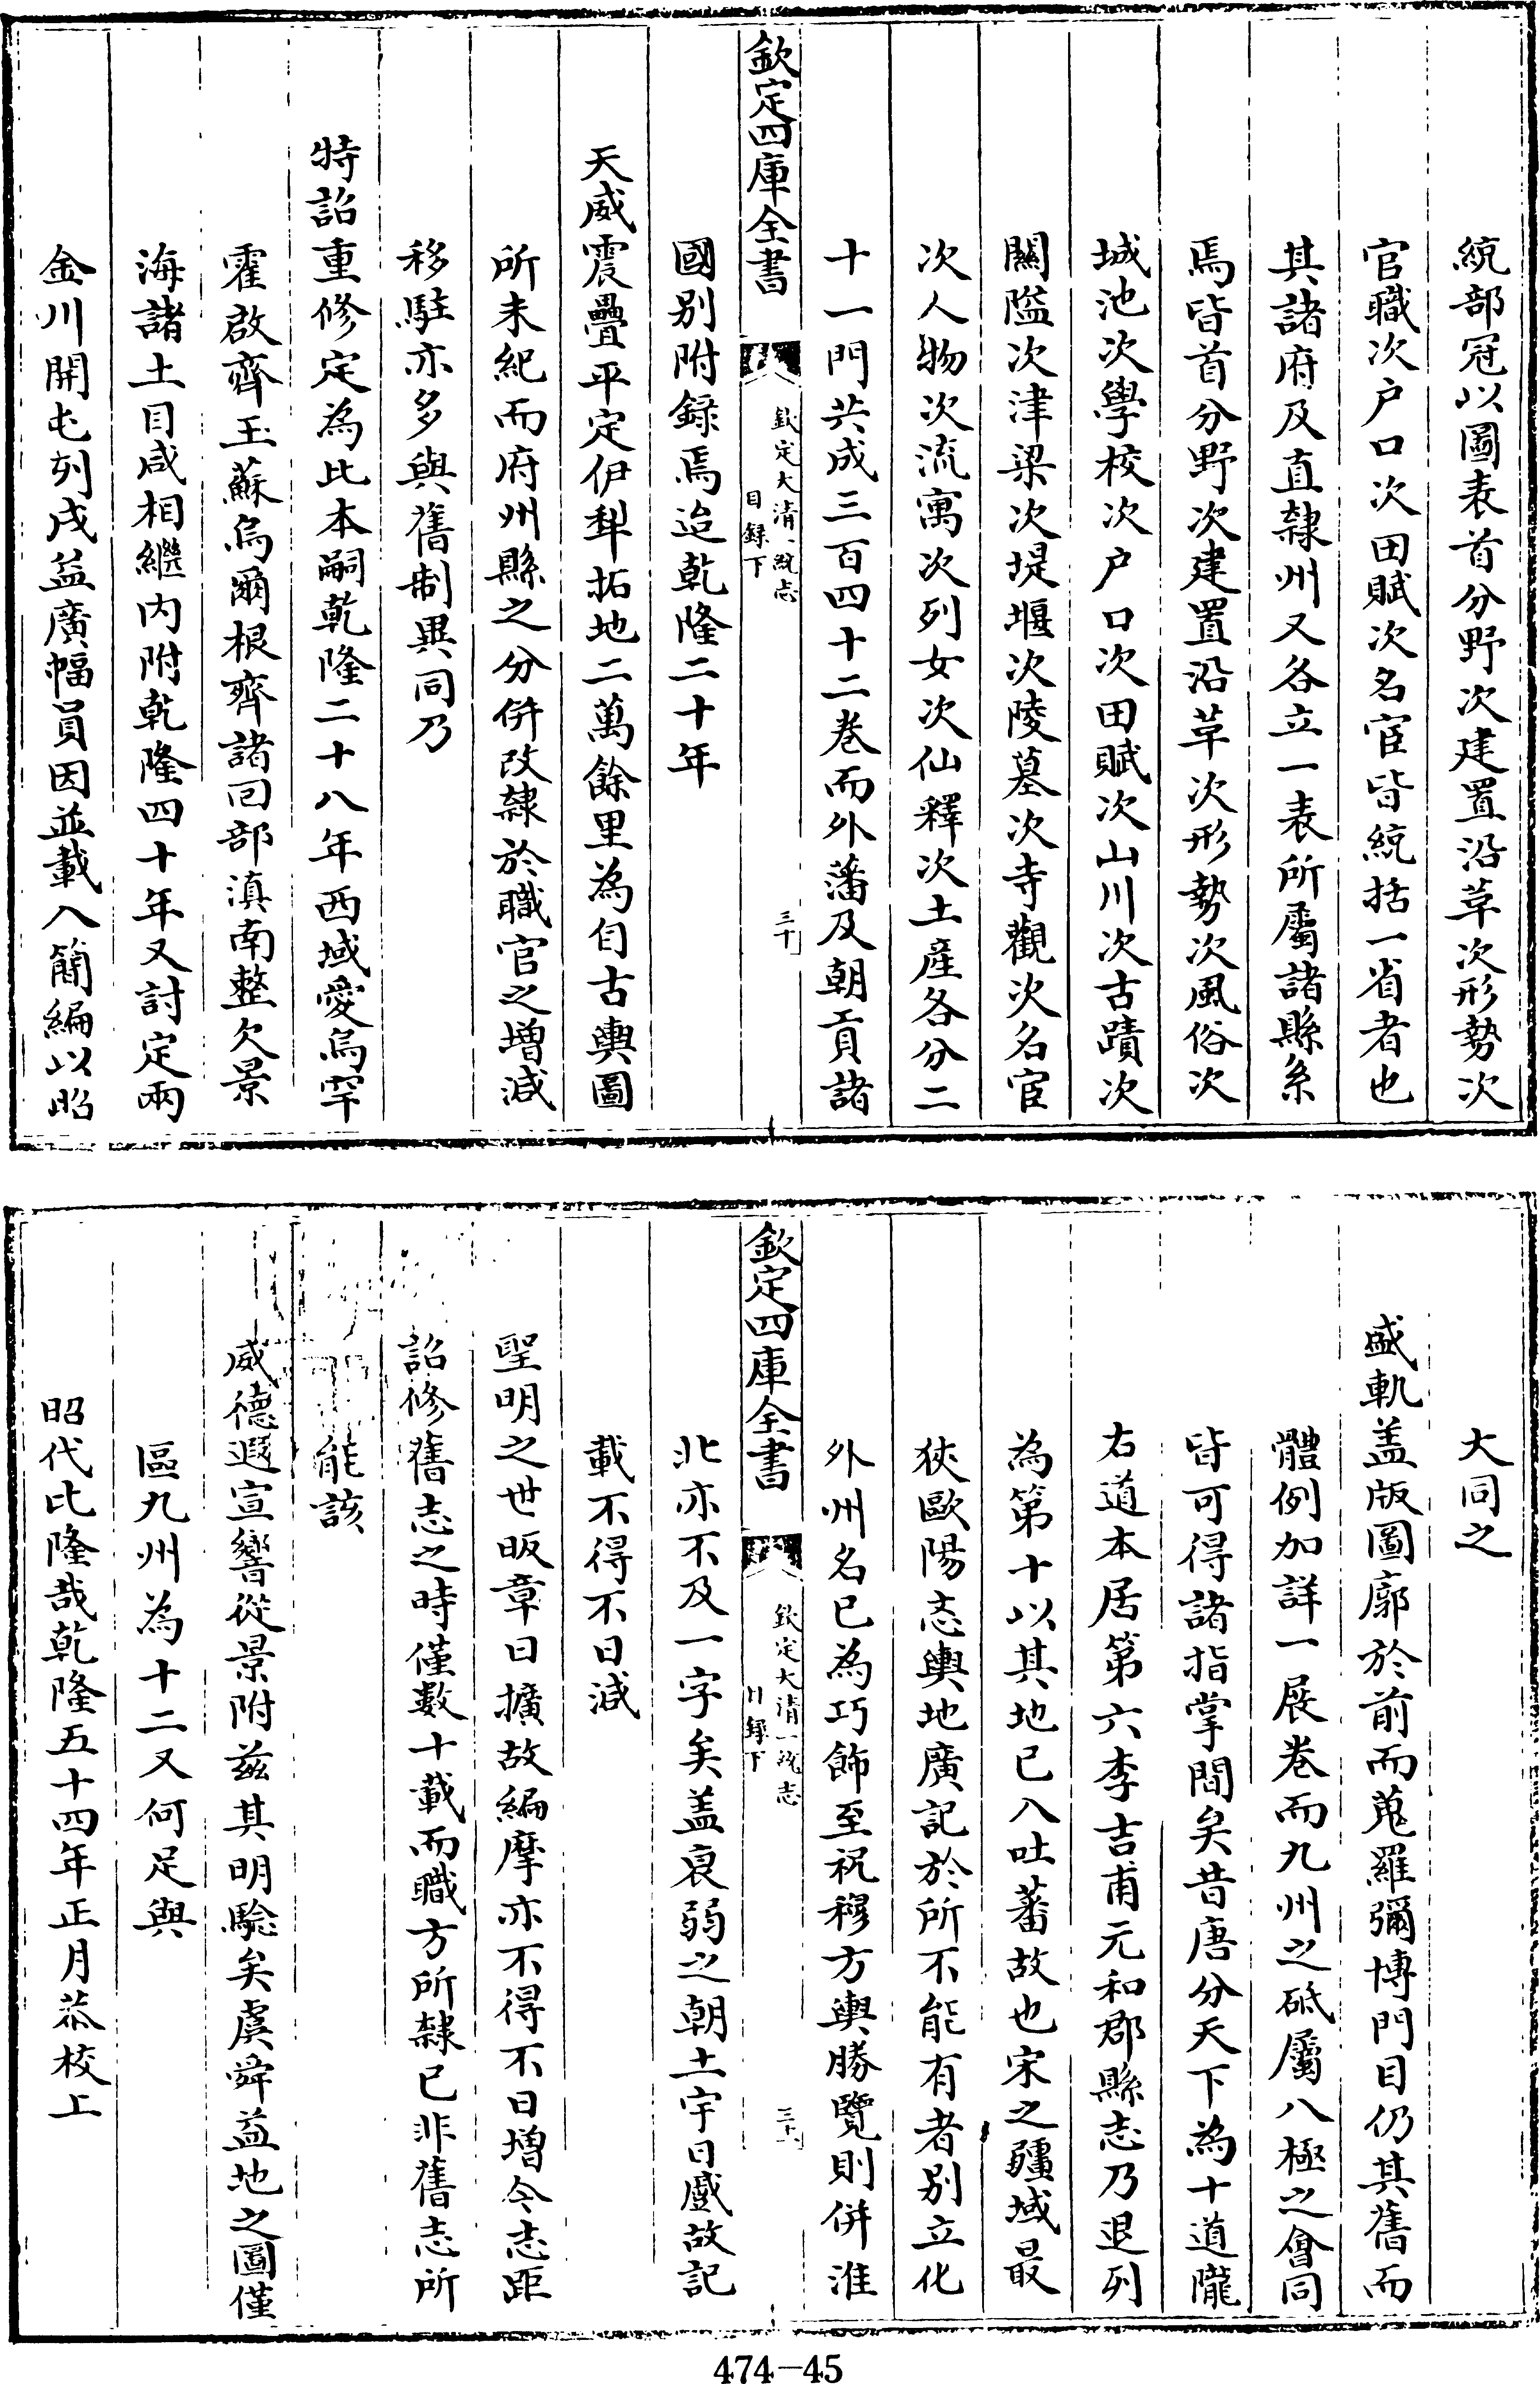 統部冠以圖表首分野次建置沿革次形勢次
官職次户口次田賦次名宦皆統括一省者也
其諸府及直隸州又各立一表所屬諸縣系
焉皆首分野次建置沿革次形勢次風俗次
城池次學校次户口次田賦次山川次古蹟次
關隘次津梁次堤堰次陵墓次寺觀次名宦
次人物次流寓次列女次仙釋次土産各分二
十一門共成三百四十二卷而外藩及朝貢諸
欽定四庫全書
欽定大清一統志
目録下
三十
國别附録焉迨乾隆二十年
天威震疊平定伊犂拓地二萬餘里為自古輿圖
所未紀而府州縣之分併改隸於職官之増減
移駐亦多與舊制異同乃
特詔重修定為此本嗣乾隆二十八年西域愛烏罕
霍啟齊玉蘇烏爾根齊諸回部滇南整欠景
海諸土目咸相繼内附乾隆四十年又討定兩
金川開屯列戍益廣幅員因並載入簡編以昭
大同之
盛軌盖版圖廓於前而蒐羅彌博門目仍其舊而
體例加詳一展卷而九州之砥屬八極之會同
皆可得諸指掌間矣昔唐分天下為十道隴
右道本居第六李吉甫元和郡縣志乃退列
為第十以其地已入吐蕃故也宋之疆域最
狹歐陽忞輿地廣記於所不能有者别立化
外州名已為巧飾至祝穆方輿勝覽則併淮
欽定四庫全書
欽定大清一統志
目録下
三十一
北亦不及一字矣盖衰弱之朝土宇日蹙故記
載不得不日減
聖明之世昄章日擴故編摩亦不得不日増今志距
詔修舊志之時僅數十載而職方所隸已非舊志所
能該
威德遐宣響從景附兹其明驗矣虞舜益地之圖僅
區九州為十二又何足與
昭代比隆哉乾隆五十四年正月恭校上
474-45